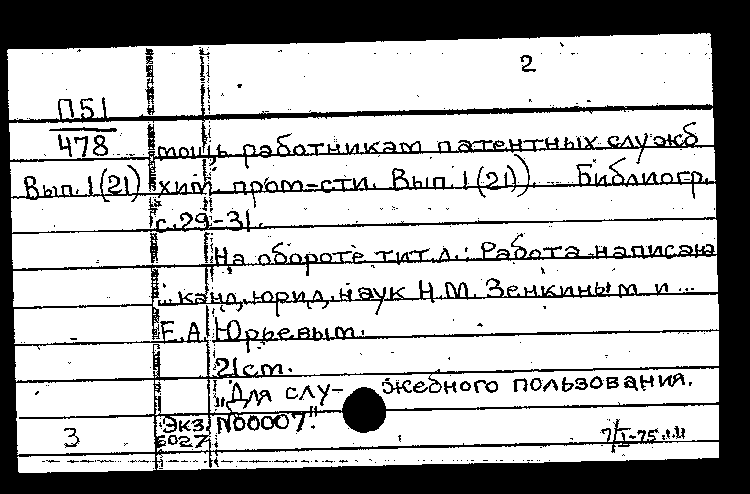 2
П51
478
мощь работникам патентных служб
Вып. 1(21) хим. пром=сти. Вып. 1(21)). Библиогр.
с. 29-31.
На обороте тит. л.: Работа написана
... канд. юрид. наук Н.М. Зенкиным и ...
Е.А. Юрьевым.
21см.
„Для слу- жебного пользования.
Экз. N00007."
3 6027 7/I-75